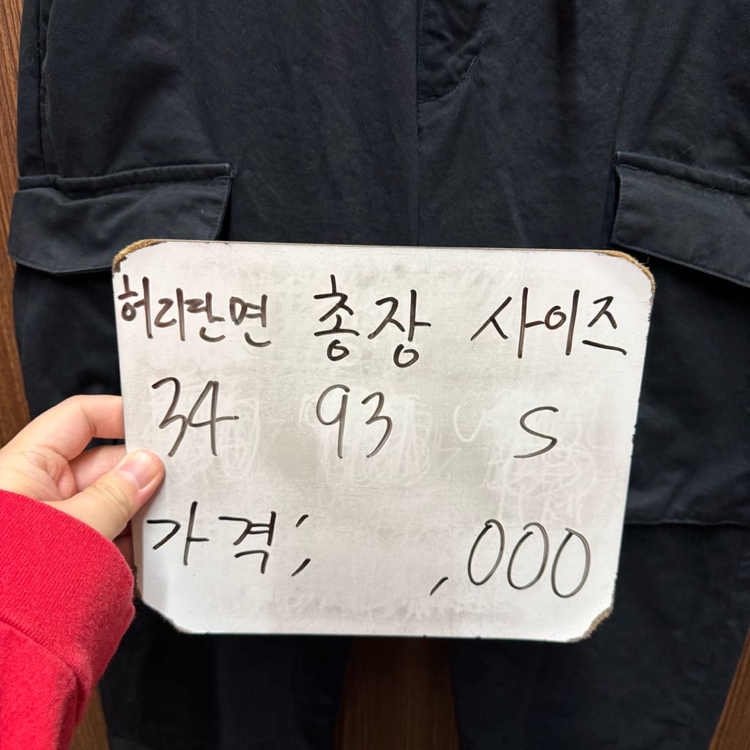 허리단면 총장 사이즈
34 93 S
가격; ,000